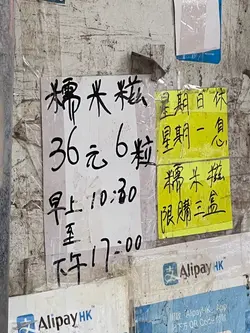 糯米糍
36元6粒
早上10:30
至
下午17:00
星期日休
星期一息
糯米糍
限購三盒
AlipayHK
AlipayHK